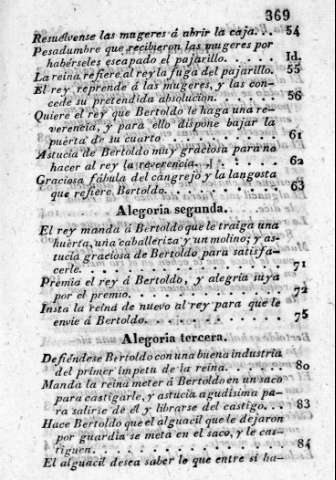 369
Resuélvense las mugeres á abrir la caja... 54
Pesadumbre que recibieron las mugeres por
habérseles escapado el pajarillo. . . . . . Id.
La reina refiere al rey la fuga del pajarillo. 55
El rey reprende á las mugeres, y las con-
cede su pretendida absolucion. . . . . . 56
Quiere el rey que Bertoldo le haga una re-
verencia, y para ello dispone bajar la
puerta de su cuarto . . . . . . . . . . 61
Astucia de Bertoldo muy graciosa para no
hacer al rey la reverencia. . . . . . . . 62
Graciosa fábula del cangrejo y la langosta
que refiere Bertoldo. . . . . . . . . . 63
Alegoria segunda.
El rey manda á Bertoldo que le traiga una
huerta, una caballeriza y un molino; y as-
tucia graciosa de Bertoldo para satisfa-
cerle. . . . . . . . . . . . . . . . . 71
Premia el rey á Bertoldo, y alegria suya
por el premio. . . . . . . . . . . . . 72
Insta la reina de nuevo al rey para que le
envie á Bertoldo. . . . . . . . . . . . 75
Alegoria tercera.
Defiéndese Bertoldo con una buena industria
del primer impetu de la reina. . . . . . 80
Manda la reina meter á Bertoldo en un saco
para castigarle, y astucia agudísima pa-
ra salirse de él y librarse del castigo. . . 83
Hace Bertoldo que el alguacil que le dejaron
por guardia se meta en el saco, y le cas-
riguen. . . . . . . . . . . . . . . . . 84
El alguacil desea saber lo que entre si ha-